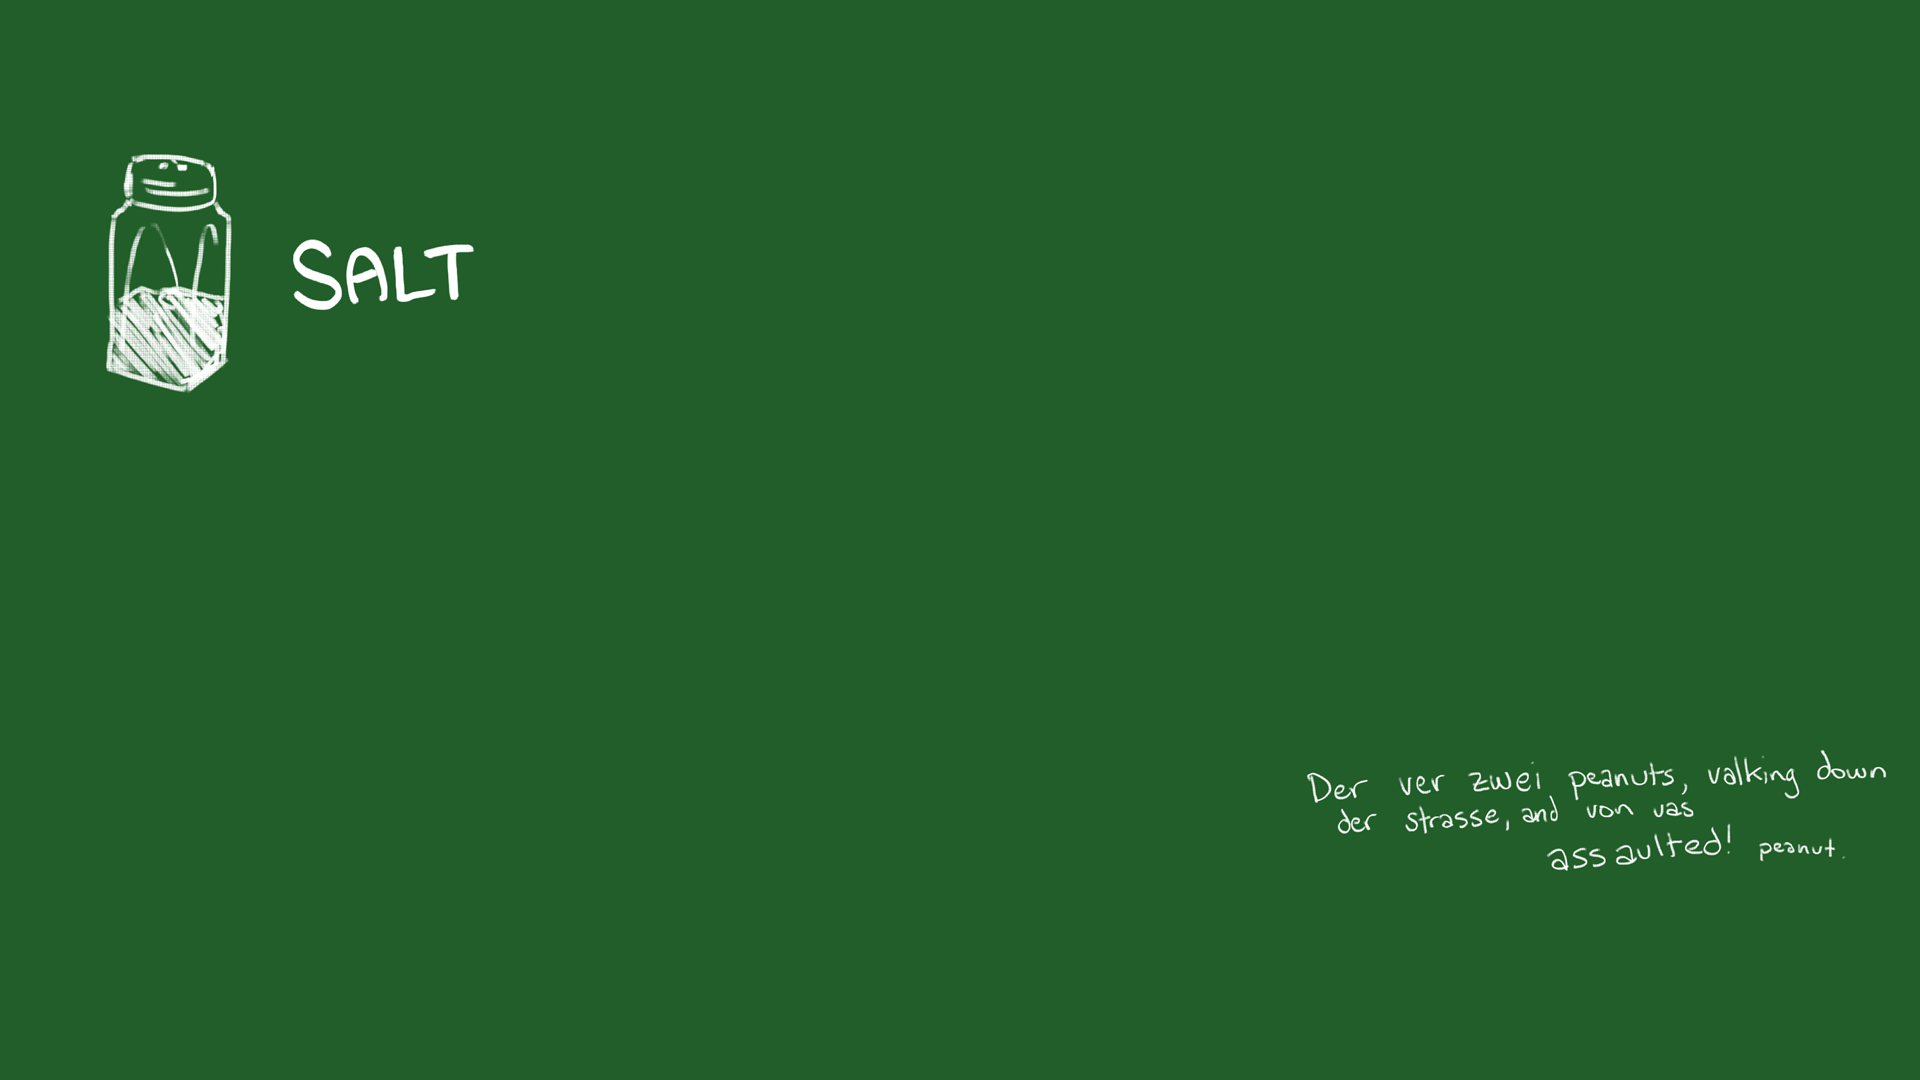 SALT
Der ver zwei peanuts, valking down
der strasse, and von vas
assaulted! peanut.